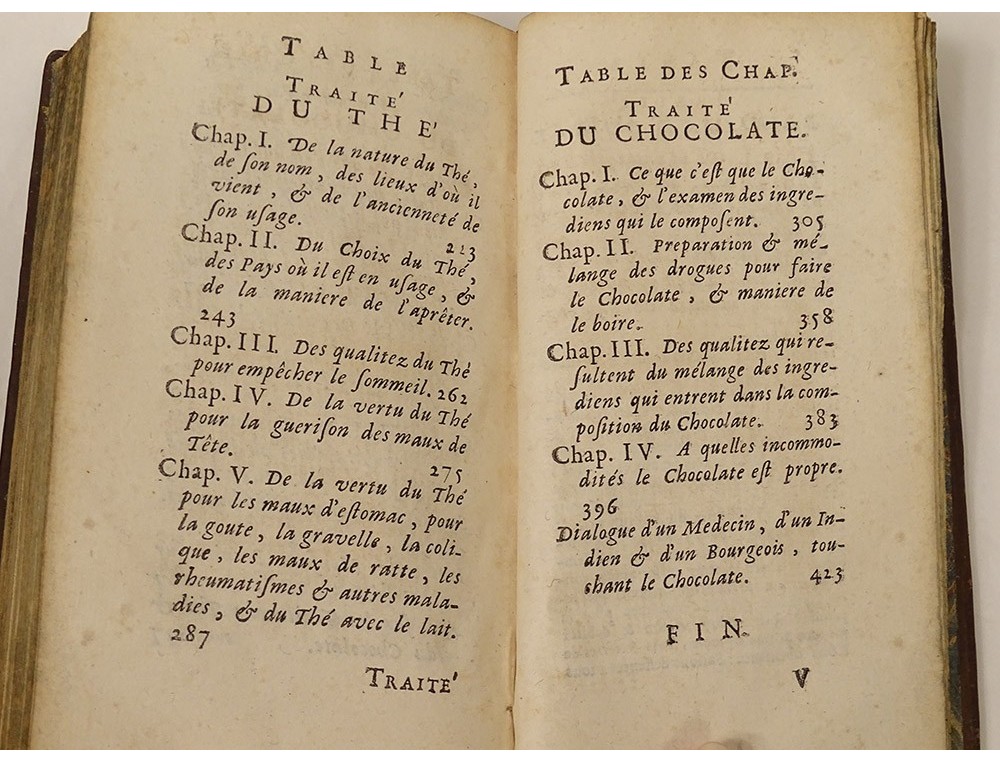 TABLE
TRAITÉ
DU THÉ
Chap. I. De la nature du Thé,
de ſon nom, des lieux d'où il
vient, & de l'ancienneté de
ſon uſage. 213
Chap. II. Du Choix du Thé,
des Pays où il eſt en uſage, &
de la maniere de l'aprêter.
243
Chap. III. Des qualitez du Thé
pour empêcher le ſommeil. 262
Chap. IV. De la vertu du Thé
pour la gueriſon des maux de
Tête. 275
Chap. V. De la vertu du Thé
pour les maux d'eſtomac, pour
la goute, la gravelle, la coli-
que, les maux de ratte, les
rheumatiſmes & autres mala-
dies, & du Thé avec le lait.
287
TRAITÉ
TABLE DES CHAP.
TRAITÉ
DU CHOCOLATE.
Chap. I. Ce que c'eſt que le Cho-
colate, & l'examen des ingre-
diens qui le compoſent. 305
Chap. II. Preparation & mé-
lange des drogues pour faire
le Chocolate, & maniere de
le boire. 358
Chap. III. Des qualitez qui re-
ſultent du mélange des ingre-
diens qui entrent dans la com-
poſition du Chocolate. 383
Chap. IV. A quelles incommo-
dités le Chocolate eſt propre.
396
Dialogue d'un Medecin, d'un In-
dien & d'un Bourgeois, tou-
shant le Chocolate. 423
FIN.
V